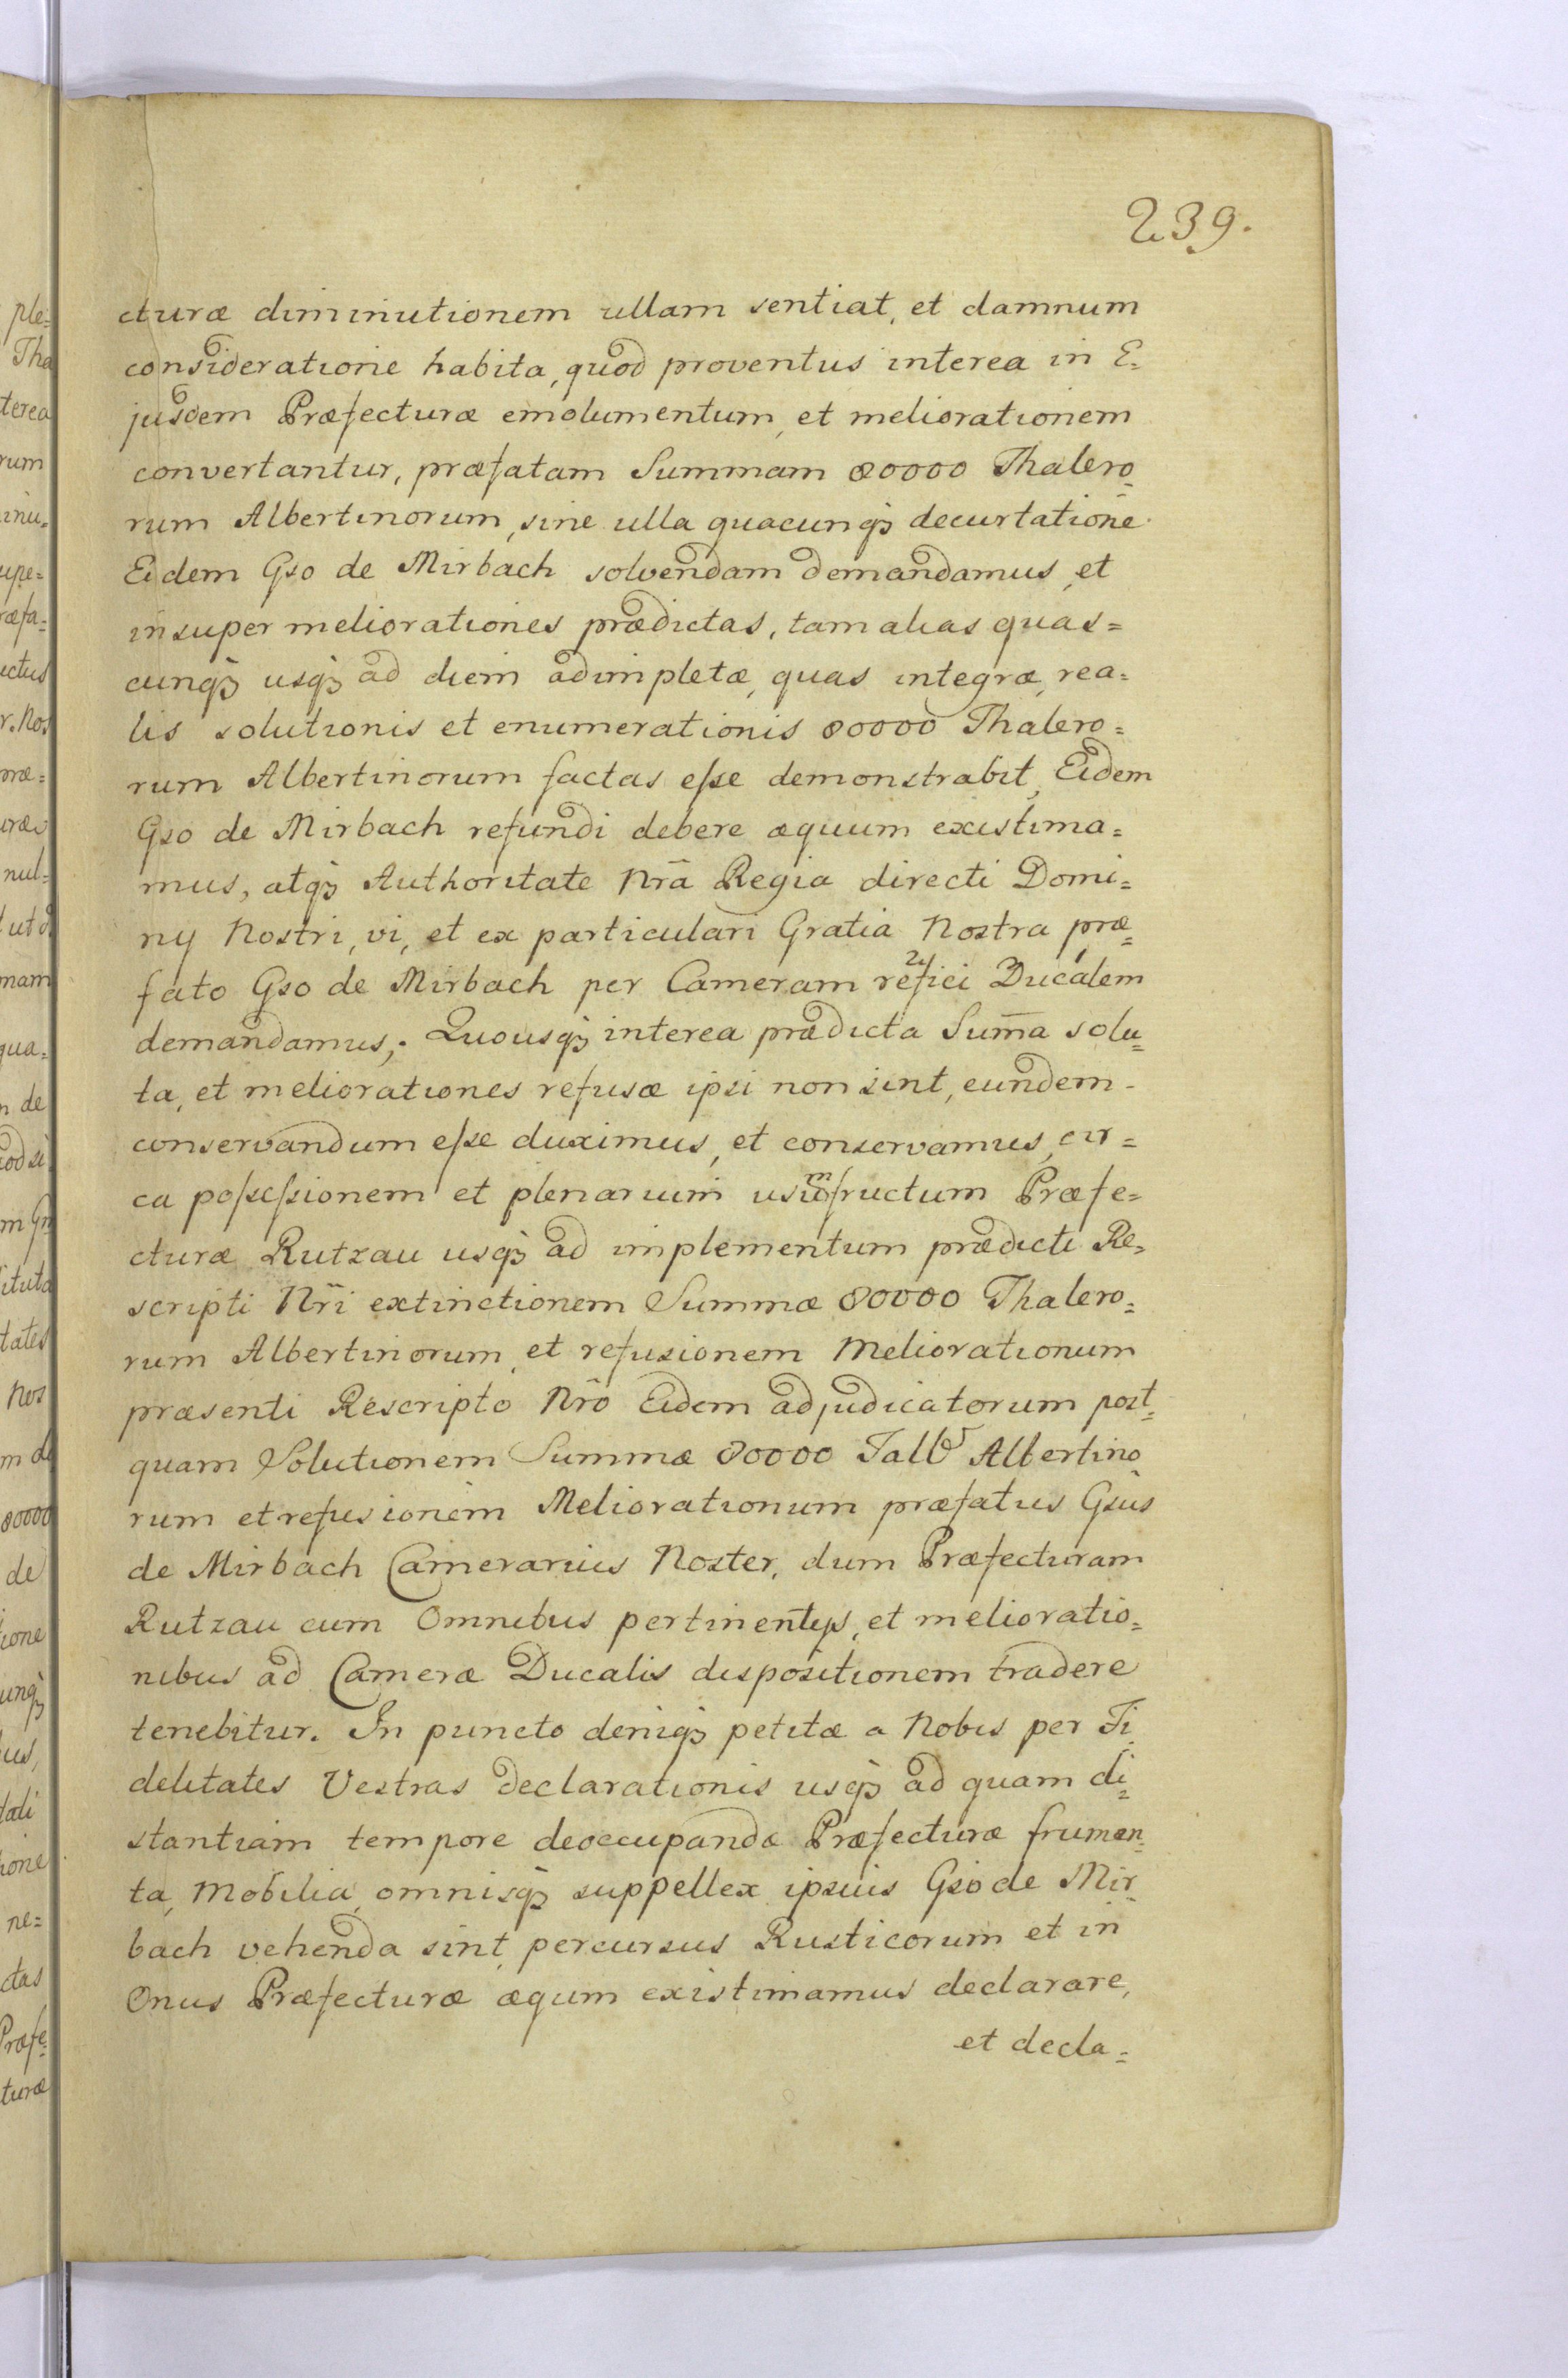 239.
cturæ diminutionem ullam sentiat, et damnum
consideratione habita, quod proventus interea in E=
jusdem Præfecturæ emolumentum, et meliorationem
convertantur, præfatam Summam 80000 Thalero=
rum Albertinorum, sine ulla quacunq3 decurtatione
Eidem Gso de Mirbach solvendam demandamus, et
insuper meliorationes prædictas, tam alias quas=
cunq3 usq3 ad diem adimpletæ, quas integræ, rea=
lis solutionis et enumerationis 80000 Thalero=
rum Albertinorum factas esse demonstrabit, Eidem
Gso de Mirbach refundi debere æquum existima=
mus, atq3 Authoritate Nrã Regia directi Domi=
nij Nostri, vi, et ex particulari Gratia Nostra præ=
fato Gso de Mirbach per Cameram refici Ducalem
demandamus; Quousq3 interea prædicta Sum̃a solu=
ta, et meliorationes refusæ ipsi non sint, eundem
conservandum esse duximus, et conservamus, cir=
ca possessionem et plenarium usumfructum Præfe=
cturæ Rutzau usq3 ad implementum prædicti Re=
scripti Nr̃i extinctionem Summæ 80000 Thalero=
rum Albertinorum, et refusionem Meliorationum
præsenti Rescripto Nr̃o Eidem adjudicatorum post=
quam Solutionem Summæ 80000 Tallr Albertino
rum et refusionem Meliorationum præfatus Gsus
de Mirbach Camerarius Noster, dum Præfecturam
Rutzau cum Omnibus pertinentijs, et melioratio=
nibus ad Cameræ Ducalis dispositionem tradere
tenebitur. In puncto deniq3 petitæ a Nobis per Fi
delitates Vestras declarationis usq3 ad quam di=
stantiam tempore deoccupandæ Præfecturæ frumen=
ta, Mobilia, omnisq3 suppellex ipsius Gso de Mir=
bach vehenda sint, percursus Rusticorum et in
Onus Præfecturæ æqum existimamus declarare,
et decla=